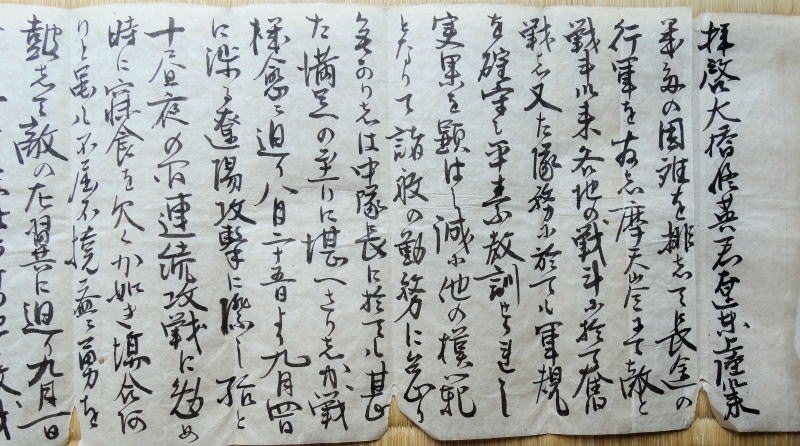 拝啓大橋 英君 上陸以来
幾多の困難を排志て長途の
行軍を 志摩天嶺ニ至て敵と
戦斗以来各地の戦斗ニ於て奮
戦し又た隊務ニ於ても軍規
を確守し平素教訓せられし
実果を顕はし誠ニ他の模範
となりて諸般の勤務に
ありしは中隊長に於ても甚
た満足の至りに堪へさりしが戦
機愈々迫り八月二十五日より九月四日
に渉る遼陽攻撃に際し殆と
十昼夜の間連続攻戦に勉め
時に寝食を欠くか如き場合何
りと雖ル不屈不撓益々勇を
皷志て敵の左翼に迫り九月一日